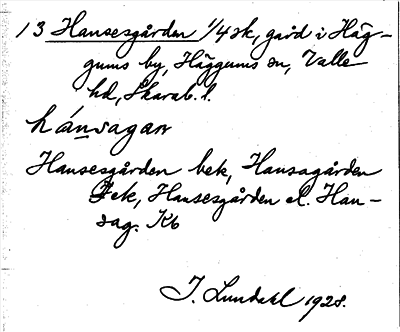 13 Hansesgården 1/4 sk, gård i Häg-
gums by, Häggums sn, Valle
hd, Skarab. l.
hánsagaɷ
Hansesgården bek, Hansagården
Jek, Hansesgården el. Han-
sag. Kb
I. Lundahl 1928.